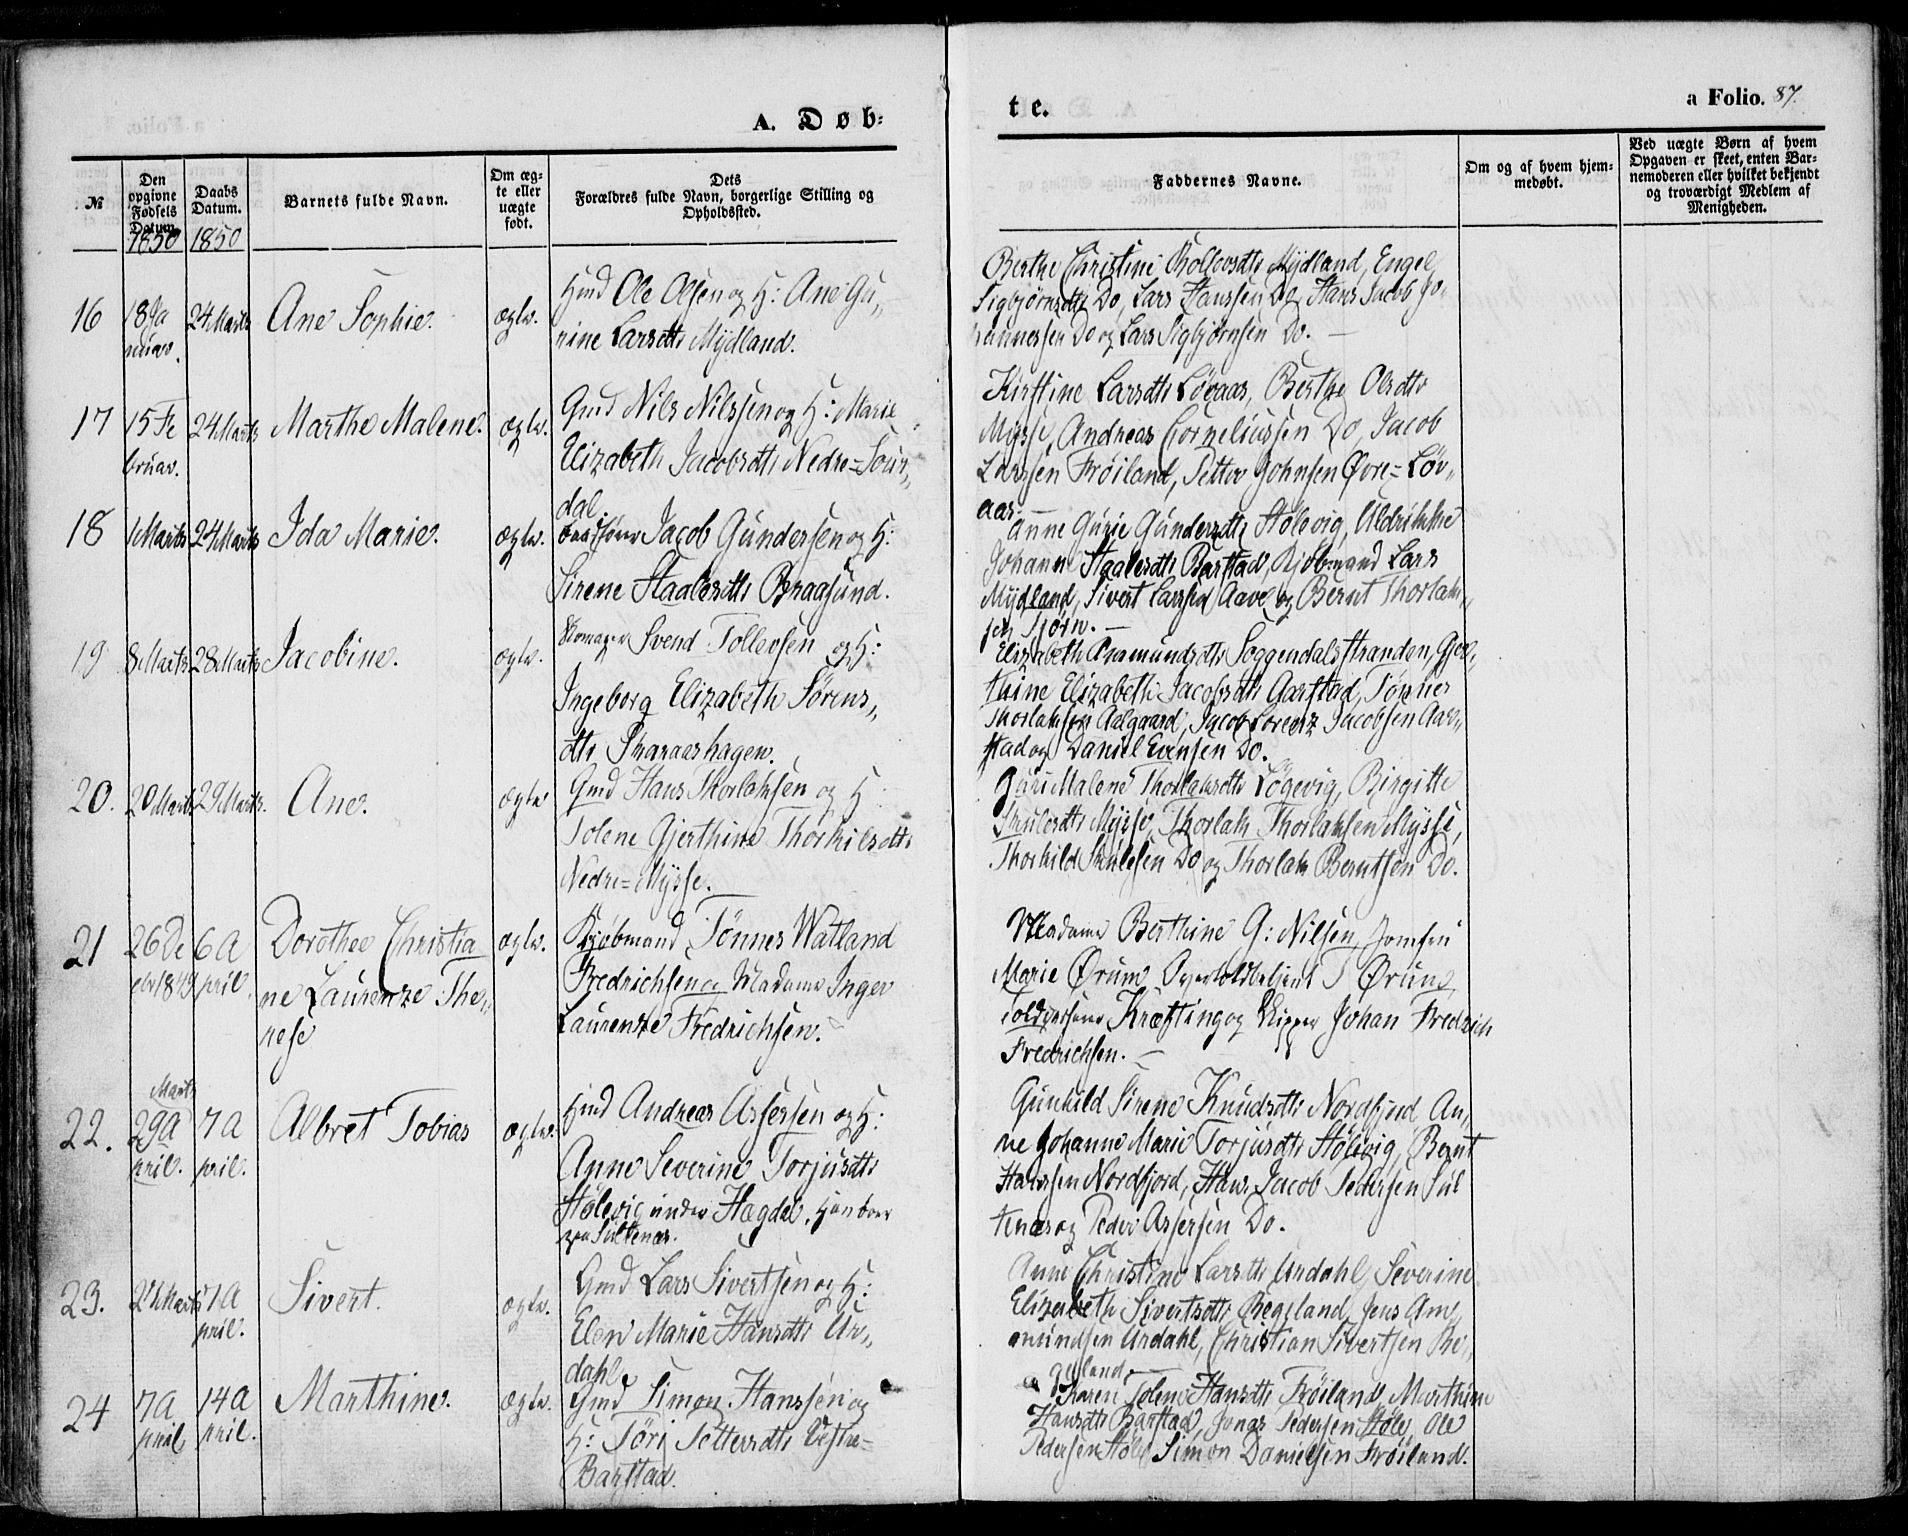 A. Døb-
te.
a Folio. 87.
№
Den opgivne Fødsels Datum.
1850
Daabs Datum.
1850
Barnets fulde Navn.
Om ægte eller uægte født.
Dets
Forældres fulde Navn, borgerlige Stilling og
Opholdssted.
Faddernes Navne.
Om og af hvem hjem-
medøbt.
Ved uægte Børn af hvem
Opgaven er skeet, enten Bar-
nemoderen eller hvilket bekjendt
og troværdigt Medlem af
Menigheden.
16
18 Ja
nuar.
24 Marts
Ane Sophie.
ægte.
Hmd Ole Olsen og H: Ane Gu„
rine Larsdtr Mydland.
Berthe Christine Tollevsdtr Mydland, Engel
Sigbjørnsdtr Do, Lars Hanssen Do, Hans Jacob Jo-
hannessen Do og Lars Sigbjørnsen Do. —
17
15 Fe
bruar.
24 Marts
Marthe Malene.
ægte.
Gmd Nils Nilssen og H: Marie
Elizabeth Jacobsdtr Nedre=Sür„
dal.
Kirstine Larsdtr Løvaas, Berthe Olsdtr
Mysse, Andreas Corneliussen Do, Jacob
Larssen Frøiland, Petter Johnsen Øvre=Løv„
aas.
18
1 Marts
24 Marts
Ida Marie.
ægte.
Jacob Gundersen og H:
Sirene Staalesdtr Braasund.
Anne Gurie Gundersdtr Hølevig, Uldrikke
Johanne Staalesdtr Barstad, Kjøbmand Lars
Mydland, Sivert Larssen Aave og Bernt Thorlak„
sen Tjørn. —
19
8 Marts
28 Marts
Jacobine.
ægte.
Skomager Svend Tollevsen og H:
Ingeborg Elizabeth Sørens„
dtr Skaraashagen.
Elizabeth Aamundsdtr Soggendalsstranden, Gjer„
thine Elizabeth Jacobsdtr Aarstad, Tønnes
Thorlaksen Aalgaard, Jacob Lorentz Jacobsen Aar„
stad og Daniel Evensen Do.
20.
20 Marts
29 Marts.
Ane.
ægte
Gmd Hans Thorlaksen og H
Tolene Gjerthine Thorkilsdtr
Nedre=Mysse.
Guri Malene Thorlaksdtr Løgevig, Birgitte
Skulesdtr Mysse, Thorlak Thorlaksen Mysse,
Thorkild Skulesen Do og Thorlak Berntsen Do.
21
26 De
cbr 1849
6 A
pril.
Dorothee Christia
ne Laurenze The„
rese
ægte.
Kjøbmand Tønnes Watland
Fredrichsen og Madame Inger
Laurenze Fredrichsen.
Madame Berthine G: Nilsen, Jomfru
Marie Ørum, Overtoldbetjent T Ørum,
Kræfting og Skipper Johan Fredrich
Fredrichsen. —
22.
Marts
29 A
pril.
7 A
pril.
Albret Tobias
ægte.
Hmd Andreas Assersen og H:
Anne Severine Torjusdtr
Hølevig under Hægdal, Han boer
paa Sültenæs.
Gunhild Sirene Knudsdtr Nordfjord, An„
ne Johanne Marie Torjusdtr Hølevig, Bernt
Hanssen Nordfjord, Hans Jacob Pedersen Sül
tenæs og Peder Assersen Do.
23.
27 Marts
7 A
pril.
Sivert.
ægte.
Gmd Lars Sivertsen og H:
Elen Marie Hansdtr Ur„
dahl.
Anne Christine Larsdtr Urdahl, Severine
Elizabeth Sivertsdtr Regeland, Jens Am„
mundsen Urdahl, Christian Sivertsen Re„
geland. —
24
7 A
pril
14 A
pril.
Marthine.
ægte.
Gmd Simon Hanssen og
H: Søri Pettersdtr Vestre=
Barstad.
Karen Tolene Hansdtr Frøiland, Marthine
Hansdtr Barstad, Jonas Pedersen Støle, Ole
Pedersen Støle, Simon Danielsen Frøiland.